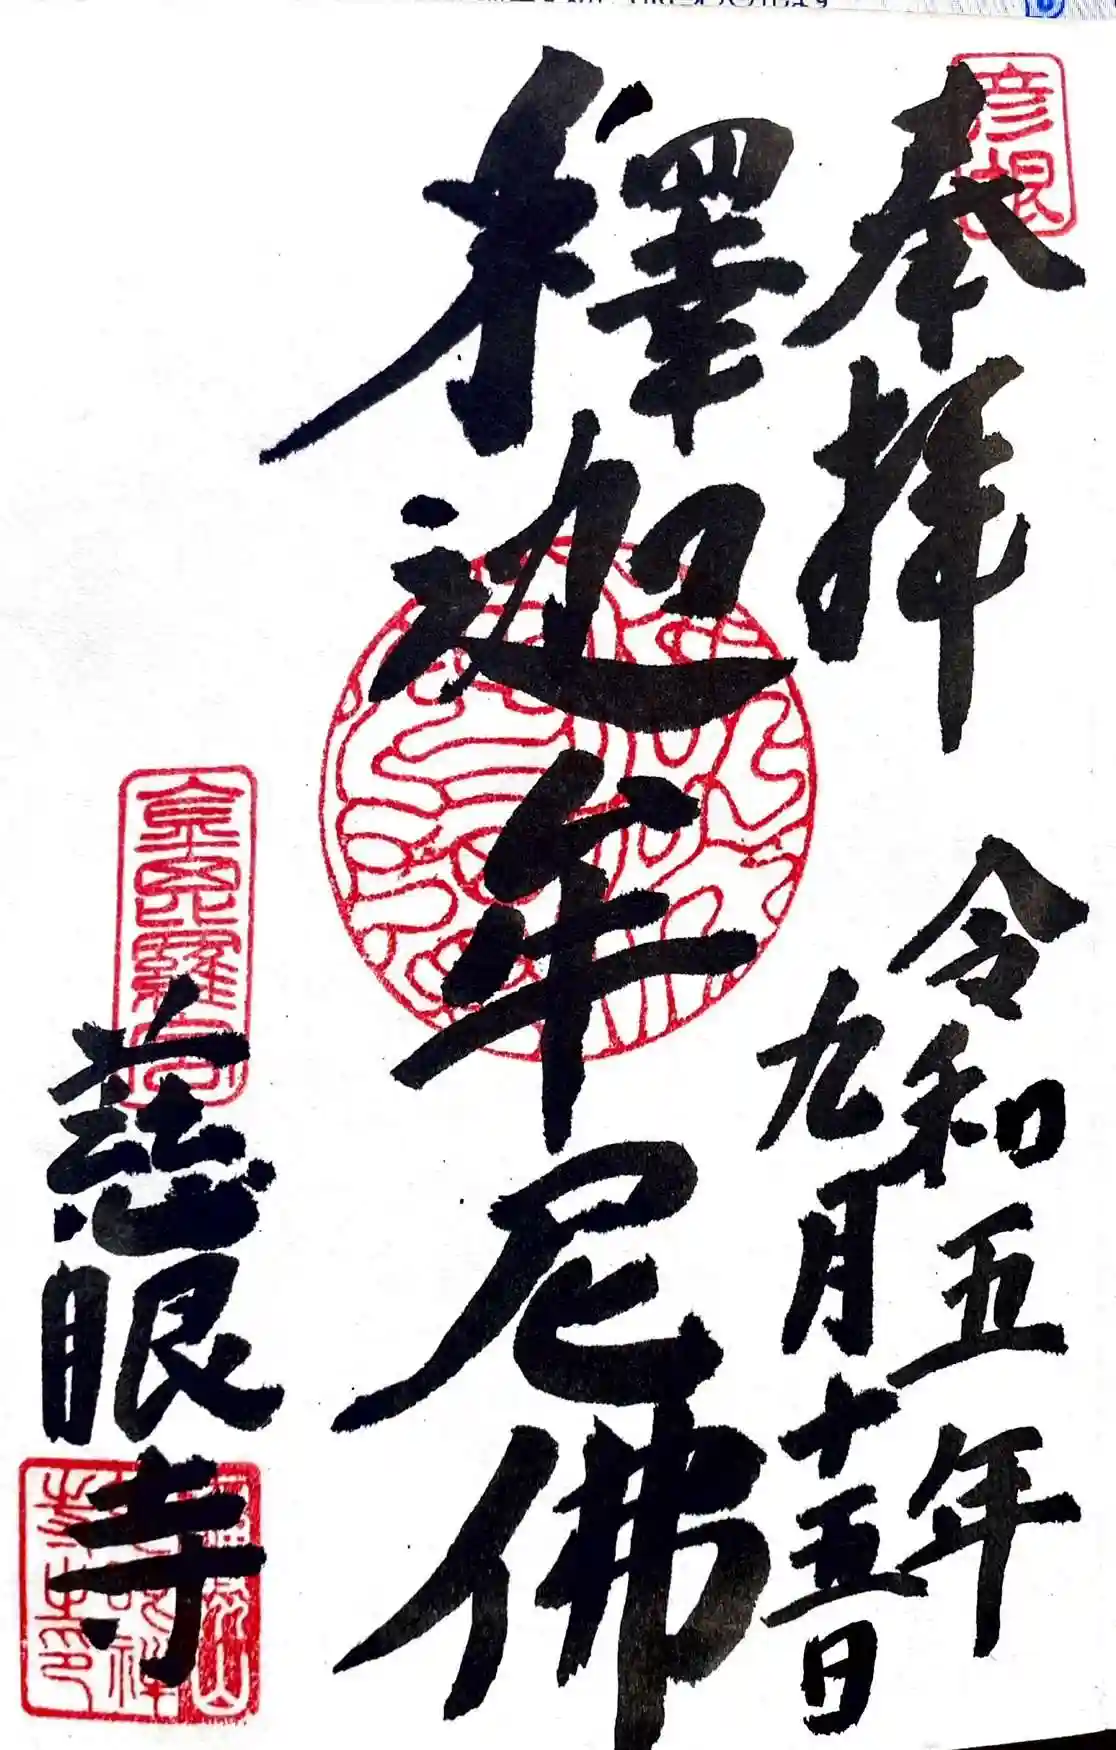 奉拝
彦根
令和五年
九月十五日
釋迦牟尼佛
慈眼寺